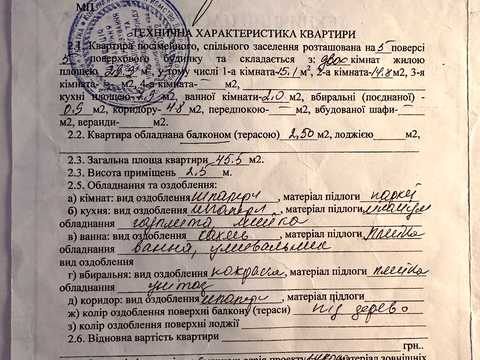 МП
ТЕХНІЧНА ХАРАКТЕРИСТИКА КВАРТИРИ
2.1. Квартира посімейного, спільного заселення розташована на 5 поверсі
5 поверхового будинку та складається з: двох кімнат жилою
площею м2, у тому числі 1-а кімната-15.1 м2, 2-а кімната-14.8м2, 3-я
кімната- м2, 4-а кімната- м2,
кухні площею м2, ванної кімнати-2.0 м2, вбиральні (поєднаної) -
0,5 м2, коридору-4.8 м2, передпокою- м2, вбудованої шафи-
м2, веранди- м2.
2.2. Квартира обладнана балконом (терасою) 2,50 м2, лоджією м2,
2.3. Загальна площа квартири 45.5 м2.
2.3. Висота приміщень 2.5 м.
2.5. Обладнання та оздоблення:
а) кімнат: вид оздоблення шпалери, матеріал підлоги паркет
б) кухня: вид оздоблення шпалери, матеріал підлоги
обладнання мийка
в) ванна: вид оздоблення, матеріал підлоги плитка
обладнання ванна, умивальник
вид оздоблення
г) вбиральня: вид оздоблення, матеріал підлоги плитка
обладнання унітаз
д) коридор: вид оздоблення шпалери, матеріал підлоги
ж) колір оздоблення поверхні балкону (тераси) під дерево
з) колір оздоблення поверхні лоджії
2.6. Відновна вартість квартири
грн..